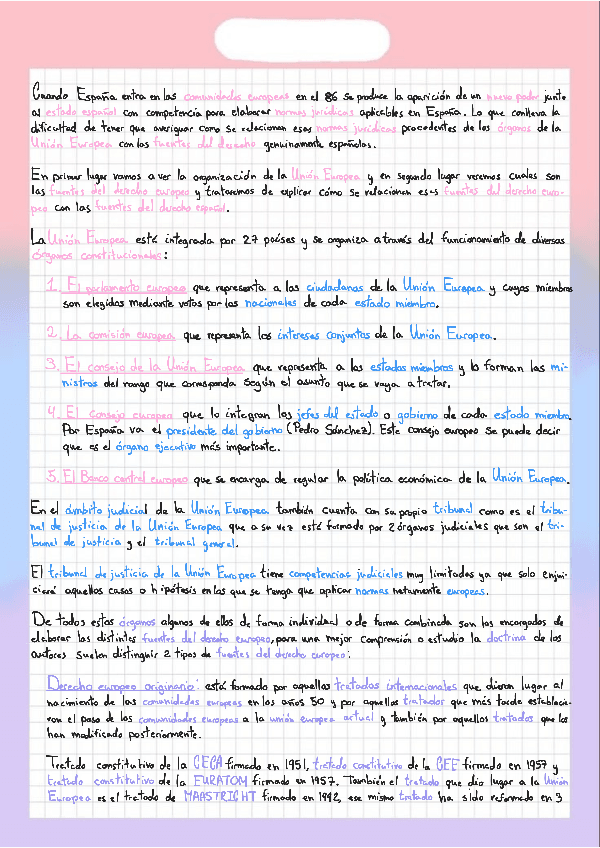 Cuando España entra en las comunidades europeas en el 86 se produce la aparición de un nuevo poder junto
al estado español con competencia para elaborar normas jurídicas aplicables en España. Lo que conlleva la
dificultad de tener que averiguar como se relacionan esas normas jurídicas procedentes de los órganos de la
Unión Europea con las fuentes del derecho genuinamente españolas.
En primer lugar vamos a ver la organización de la Unión Europea y en segundo lugar veremos cuales son
las fuentes del derecho europeo y trataremos de explicar cómo se relacionan esas fuentes del derecho euro-
peo con las fuentes del derecho español.
La Unión Europea está integrada por 27 países y se organiza a través del funcionamiento de diversos
órganos constitucionales:
1. El parlamento europeo que representa a los ciudadanos de la Unión Europea y cuyos miembros
son elegidos mediante votos por los nacionales de cada estado miembro.
2. La comisión europea que representa los intereses conjuntos de la Unión Europea.
3. El consejo de la Unión Europea que representa a los estados miembros y lo forman los mi-
nistros del rango que corresponda según el asunto que se vaya a tratar.
4. El Consejo europeo que lo integran los jefes del estado o gobierno de cada estado miembro.
Por España va el presidente del gobierno (Pedro Sánchez). Este consejo europeo se puede decir
que es el órgano ejecutivo más importante.
5. El Banco central europeo que se encarga de regular la política económica de la Unión Europea.
En el ámbito judicial de la Unión Europea también cuenta con su propio tribunal como es el tribu-
nal de justicia de la Unión Europea que a su vez está formado por 2 órganos judiciales que son el tri-
bunal de justicia y el tribunal general.
El tribunal de justicia de la Unión Europea tiene competencias judiciales muy limitadas ya que solo enjui-
ciará aquellos casos o hipótesis en las que se tenga que aplicar normas netamente europeas.
De todos estos órganos algunos de ellos de forma individual o de forma combinada son los encargados de
elaborar los distintos fuentes del derecho europeo, para una mejor comprensión o estudio la doctrina de los
autores suelen distinguir 2 tipos de fuentes del derecho europeo:
Derecho europeo originario: está formado por aquellos tratados internacionales que dieron lugar al
nacimiento de las comunidades europeas en los años 50 y por aquellos tratados que más tarde establecie-
ron el paso de las comunidades europeas a la unión europea actual y también por aquellos tratados que los
han modificado posteriormente.
Tratado constitutivo de la CECA firmado en 1951, tratado constitutivo de la CEE firmado en 1957 y
tratado constitutivo de la EURATOM firmado en 1957. También el tratado que dio lugar a la Unión
Europea es el tratado de MAASTRICHT firmado en 1992, ese mismo tratado ha sido reformado en 3